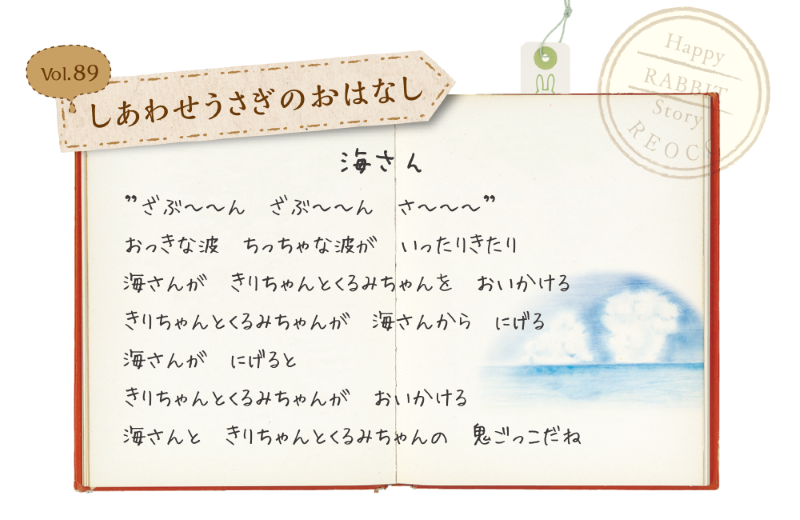 Vol.89
しあわせうさぎのおはなし
Happy
RABBIT
Story
REOCO
海さん
”ざぶ〜〜ん　ざぶ〜〜ん　さ〜〜〜”
おっきな波　ちっちゃな波が　いったりきたり
海さんが　きりちゃんとくるみちゃんを　おいかける
きりちゃんとくるみちゃんが　海さんから　にげる
海さんが　にげると
きりちゃんとくるみちゃんが　おいかける
海さんと　きりちゃんとくるみちゃんの　鬼ごっこだね